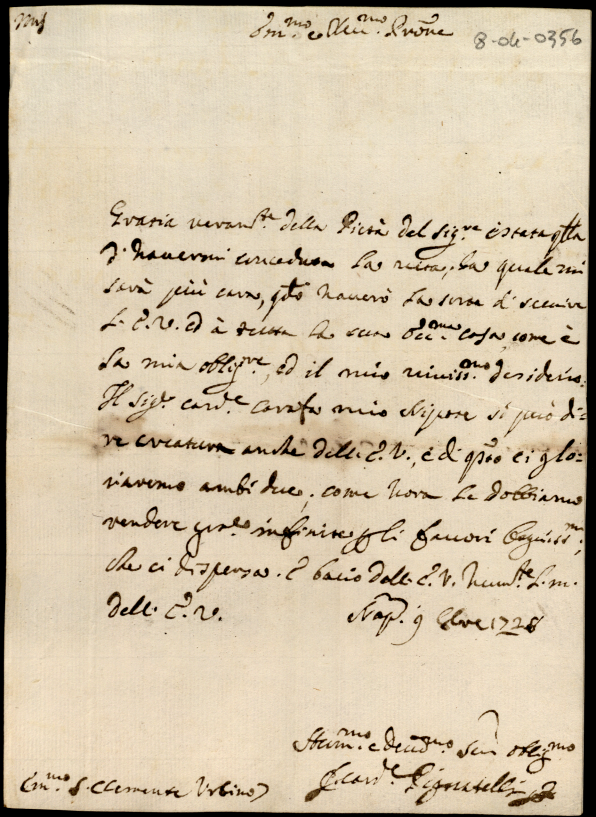 Em.mo e Rev.mo Prōne
8-04-0356
Gratia veram.te della Pietà del Sig.re è stata q̄lla
d'havermi conceduta la vita, la quale mi
sarà più cara, q̄to haverò la sorte di servire
l'E. V. ed à tutta la sua Ecc.ma casa, come è
la mia oblig.ne, ed il mio viviss.mo desiderio.
Il Sig.r card.e carafa mio Nipote si può di-
re creatura anche dell'E. V., e di q̄sto ci glo-
riaremo ambidue, come hora le dobbiamo
rendere gra.e infinite p̄ li favori
che ci dispensa. E bacio dell'E. V. hum.te l. m.
dell'E. V. Nap. 9 1728
Hum.mo e Dev.mo Ser. oblig.mo
F. card.e Pignatelli
Em.mo S. Clemente Urbino